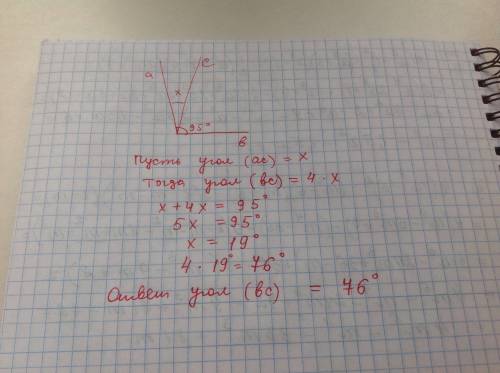 a
c
x
95°
в
Пусть угол (ac) = x
Тогда угол (вc) = 4 · x
x + 4x = 95°
5x = 95°
x = 19°
4 · 19° = 76°
Ответ угол (вc) = 76°